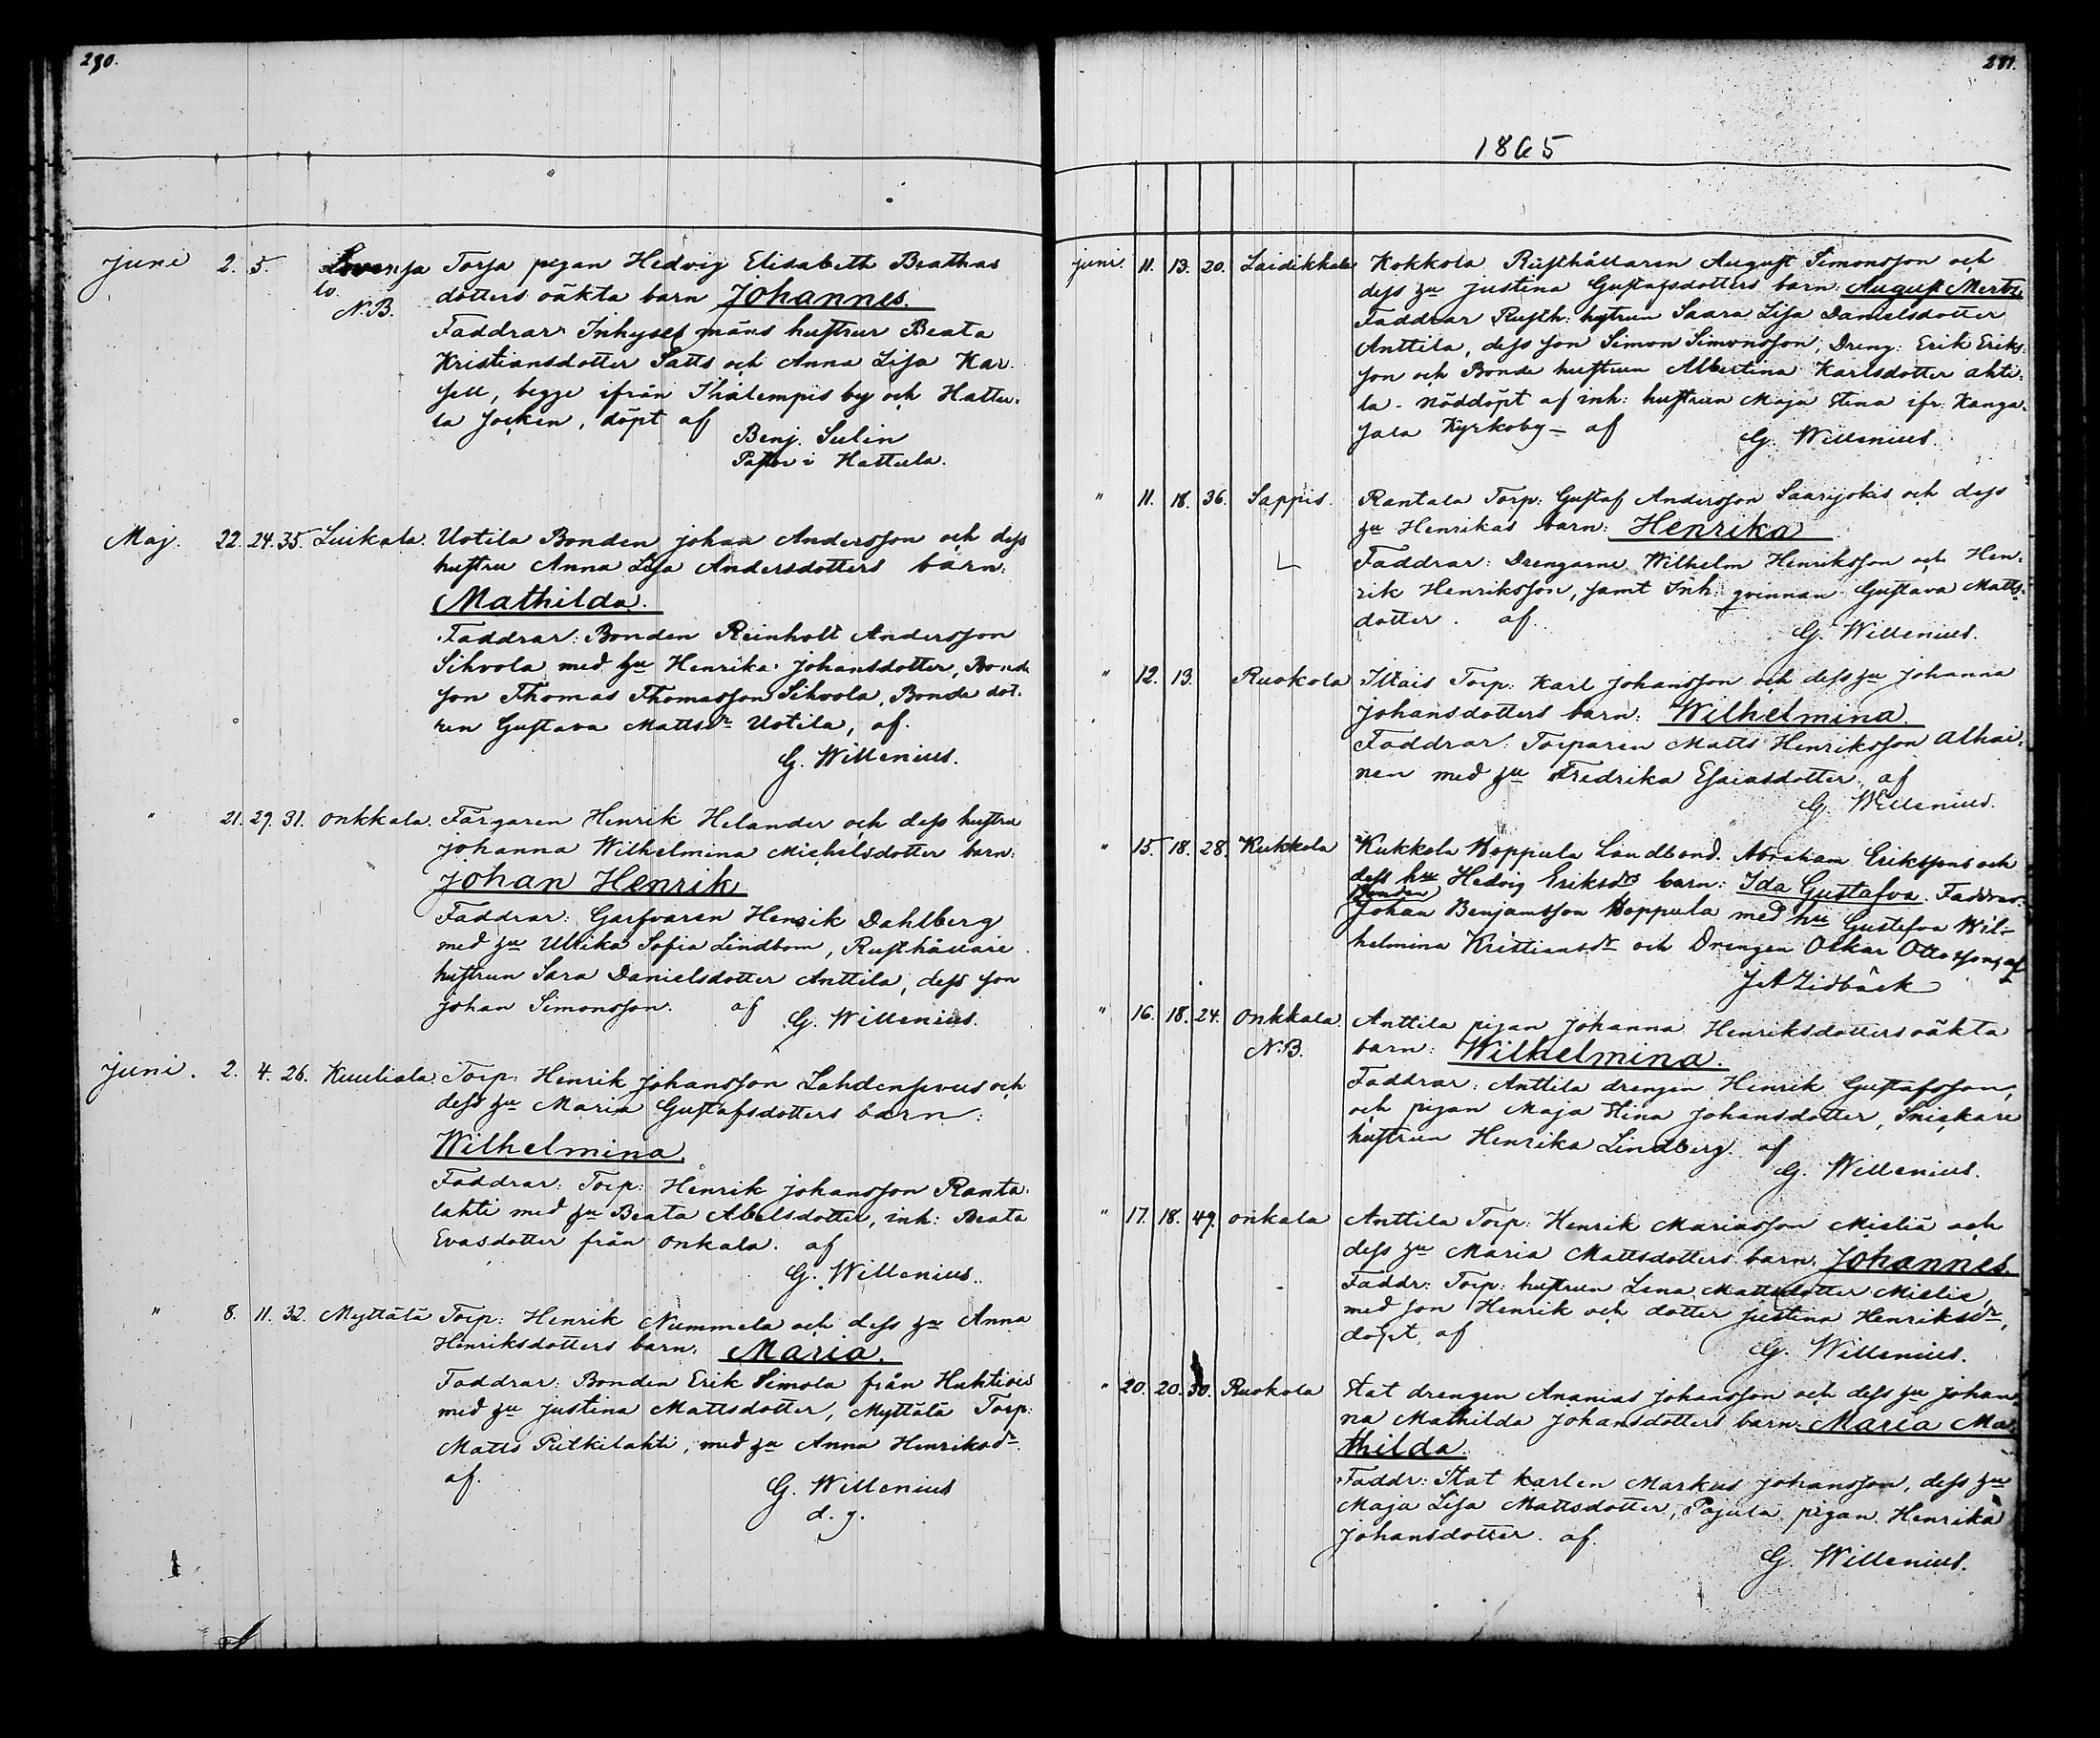 230.
Juni 2. 5. Lovenja Torja pigan Hedvig Elisabeth Beathas
to. N.B. dotters oäkta barn Johannes.
Faddrar Inhyses mäns hustrur Beata
Kristiansdotter Satts och Anna Lisa Kar
sell, begge ifrån Ihalempis by och Hattu-
la Socken, döpt af
Benj. Sulin
Pastor i Hattula.
Maj. 22. 24. 35. Luikala. Uotila Bonden Johan Andersson och dess
hustru Anna Lisa Andersdotters barn:
Mathilda.
Faddrar: Bonden Reinholt Andersson
Sihvola med hu Henrika Johansdotter, Bonde
son Thomas Thomasson Sihvola, Bonde dot-
ren Gustava Mattsdr Uotila, af.
G. Willenius.
" 21. 29. 31. Onkkala. Färgaren Henrik Helander och dess hustru
Johanna Wilhelmina Michelsdotter barn:
Johan Henrik
Faddrar: Garfvaren Henrik Dahlberg
med hu Ulrika Sofia Lindbom, Rusthållare
hustrun Sara Danielsdotter Anttila, dess son
Johan Simonsson. af G. Willenius.
Juni. 2. 4. 26. Kuuliala. Torp: Henrik Johansson Lahdensivus och
dess hu Maria Gustafsdotters barn:
Wilhelmina.
Faddrar: Torp: Henrik Johansson Ranta-
lahti med hu Beata Abelsdotter, inh: Beata
Evasdotter från Onkala. af
G. Willenius.
" 8. 11. 32. Myttälä Torp: Henrik Nummela och dess hu Anna
Henriksdotters barn. Maria.
Faddrar: Bonden Erik Simola från Huhtiois
med hu Justina Mattsdotter, Myttälä Torp:
Matts Putkilahti, med hu Anna Henriksdr
af. G. Willenius
d. y.
281.
1865
Juni. 11. 13. 20. Laidikkala Kokkola Rusthållaren August Simonsson och
dess hu Justina Gustafsdotters barn: August Mertu
Faddrar Rusth: hustrun Saara Lisa Danielsdotter
Anttila, dess son Simon Simonsson, Dreng: Erik Eriks-
son och Bonde hustrun Albertina Karlsdotter Ahti-
la - nöddöpt af inh: hustrun Maja Stina ifr: Kanga-
sala Kyrkoby - af G. Willenius.
" 11. 18. 36. Sappis. Rantala Torp: Gustaf Andersson Saarijokis och dess
hu Henrikas barn: Henrika
Faddrar: Drengarne Wilhelm Henriksson och Hen-
rik Henriksson, samt Inh: qvinnan Gustava Matts-
dotter. af.
G. Willenius.
" 12. 13. Ruokola Illais Torp: Karl Johansson och dess hu Johanna
Johansdotters barn: Wilhelmina.
Faddrar: Torparen Matts Henriksson Alhai-
nen med hu Fredrika Esaiasdotter. af
G. Willenius.
" 15. 18. 28. Kukkola Kukkola Hoppula Landbond. Abraham Erikssons och
dess hu Hedvig Eriksdrs barn: Ida Gustafva. Faddrar:
Bonden
Johan Benjamsson Hoppula med hu Gustafva Wil-
helmina Kristiansdr och Drengen Oskar Ottosson, af
J A Zidbäck
" 16. 18. 24. Onkkala. Anttila pigan Johanna Henriksdotters oäkta
N.B. barn: Wilhelmina.
Faddrar: Anttila drengen Henrik Gustafsson,
och pigan Maja Stina Johansdotter, Snickare
hustrun Henrika Lindberg. af
G. Willenius.
" 17. 18. 49. Onkala Anttila Torp: Henrik Mariasson Mieliä och
dess hu Maria Mattsdotters barn. Johannes.
Faddr: Torp: hustrun Lena Mattsdotter Mieliä,
med son Henrik och dotter Justina Henriksdr,
döpt af
G. Willenius.
" 20. 20. 30. Ruokola Stat drengen Ananias Johansson och dess hu Johan-
na Mathilda Johansdotters barn: Maria Ma-
thilda.
Faddr: Stat karlen Markus Johansson, dess hu
Maja Lisa Mattsdotter, Pajula pigan Henrika
Johansdotter. af.
G. Willenius.